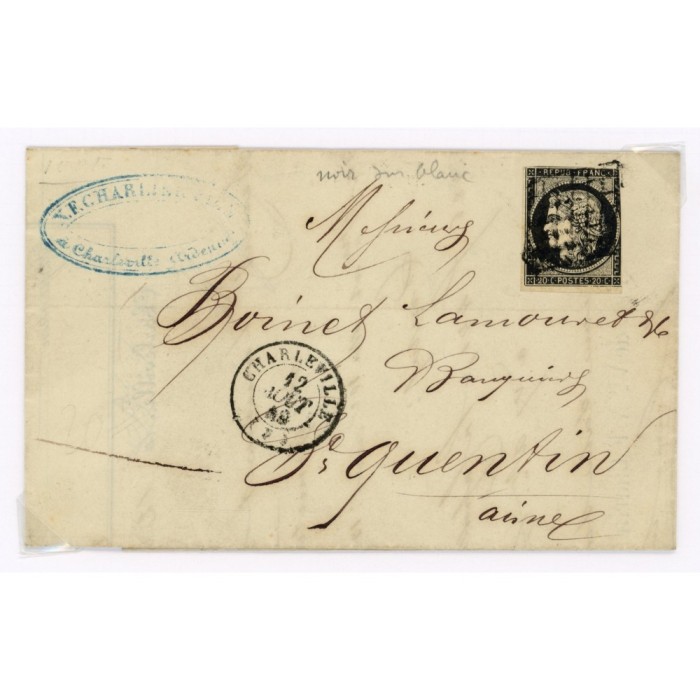 noir sur blanc
V.F.CHARLIER
à Charleville (Ardennes)
REPUB FRANC
20 C POSTES 20 C
Messieurs
Boinet Lamouret & C
Banquiers
St Quentin
aisne
CHARLEVILLE
12
AOUT
(7)